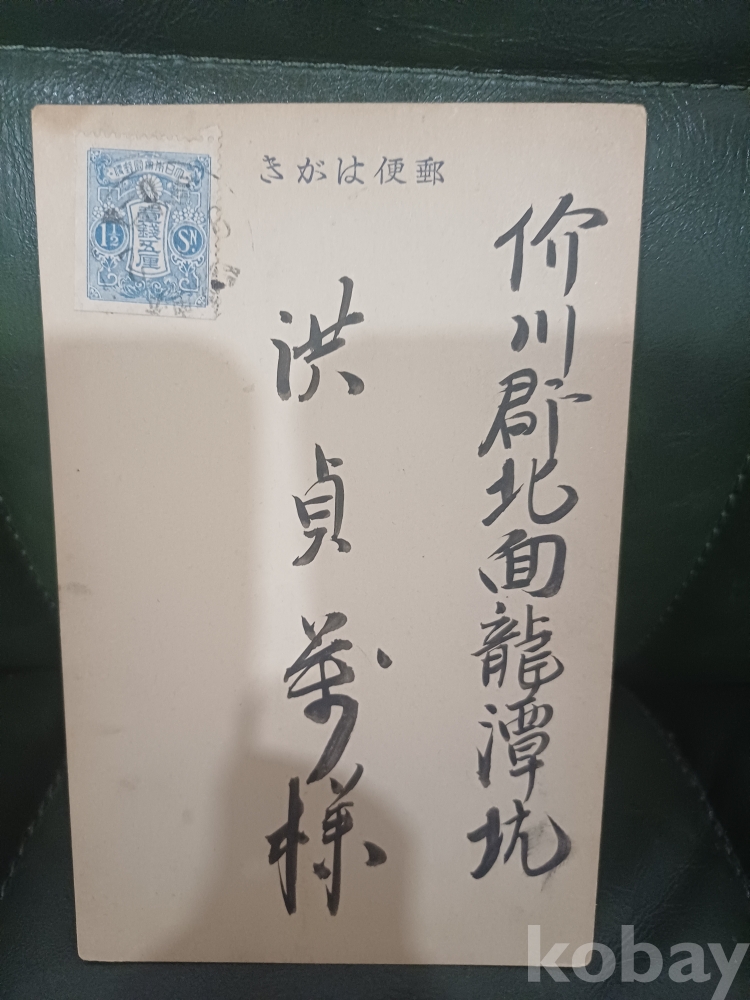 きがは便郵
大日本帝國郵便
壹錢五厘
1½ Sn
价川郡北面龍潭坑
洪貞萬様
kobay